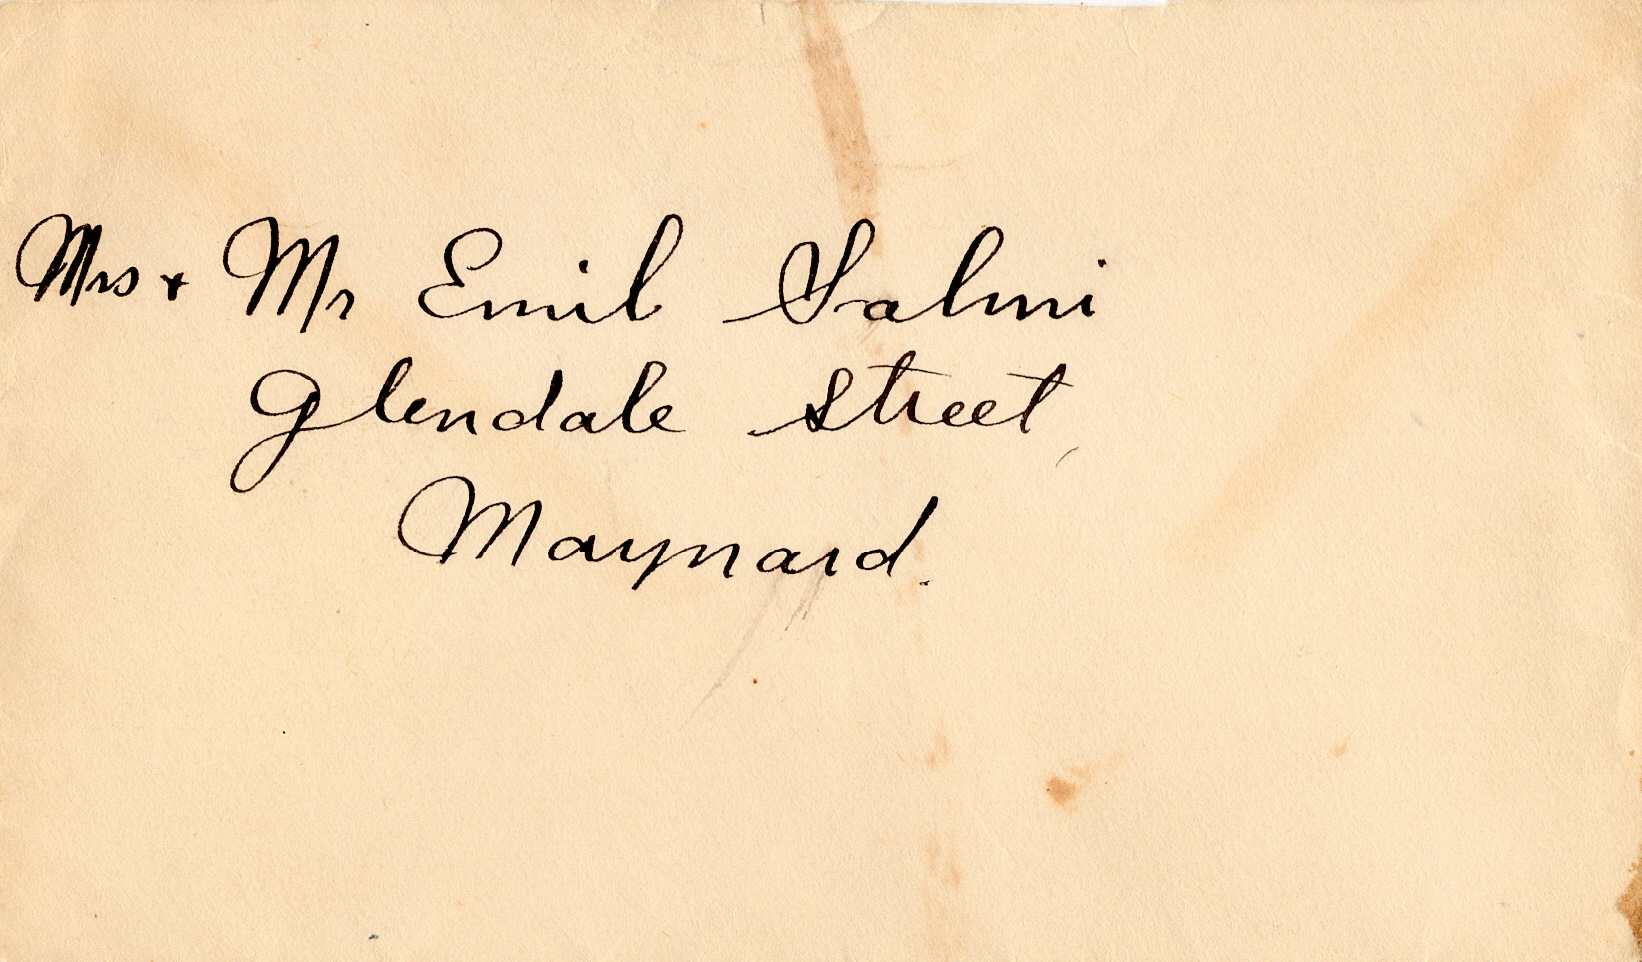 Mrs + Mr Emil Salmi
Glendale Street,
Maynard.